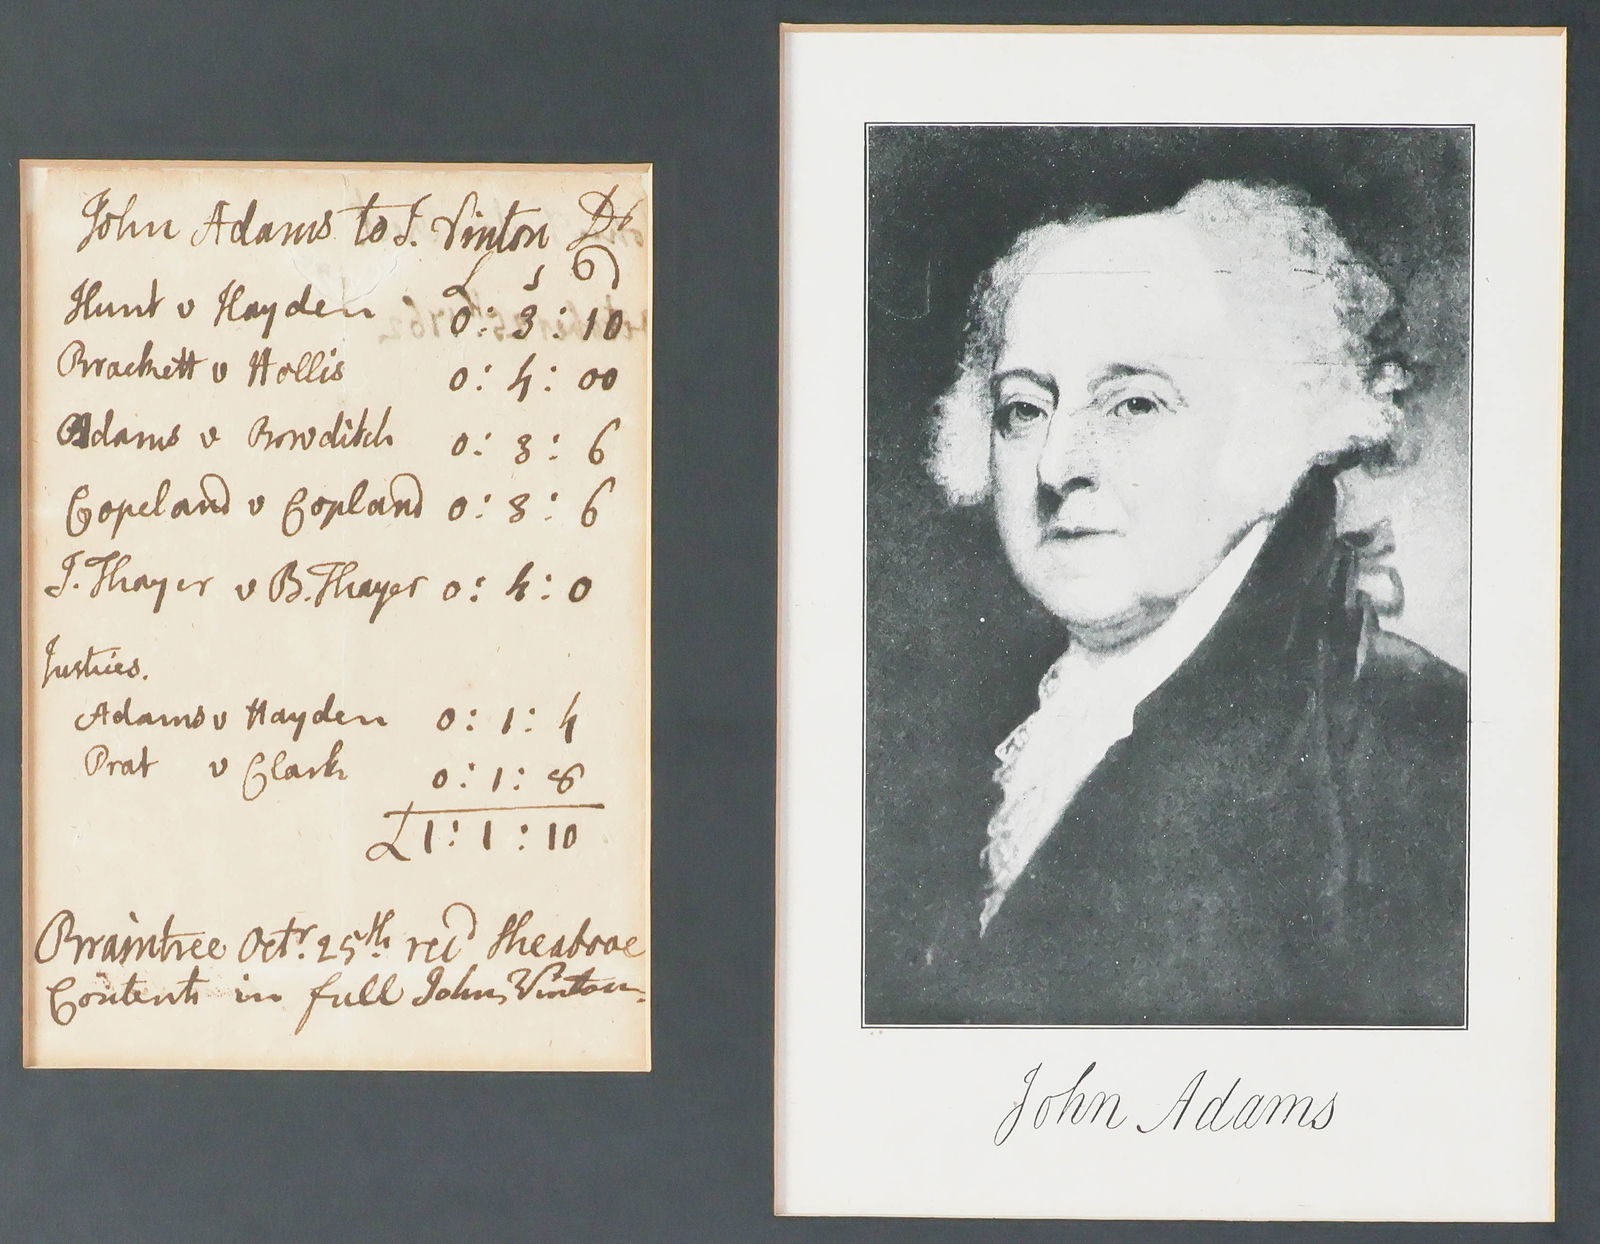 John Adams to J. Vinton Dr
£ s D
Hunt v Hayden 0: 3: 10
Brackett v Hollis 0: 4: 00
Adams v Bowditch 0: 3: 6
Copeland v Copland 0: 3: 6
J. Thayer v B. Thayer 0: 4: 0
Justices.
Adams v Hayden 0: 1: 4
Prat v Clark 0: 1: 8
£1: 1: 10
Braintree Octr. 25th recd the above
Contents in full John Vinton.
John Adams